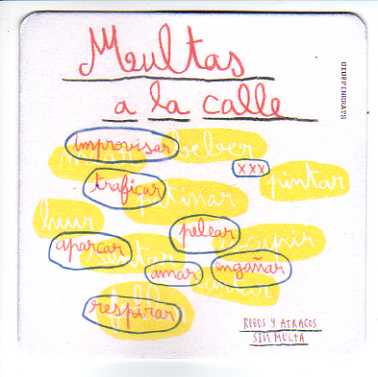 Multas
a la calle
Improvisar
beber
xxx
pintar
traficar
patinar
huir
pelear
aparcar
amar
engañar
respirar
ROBOS Y ATRACOS
SIN MULTA